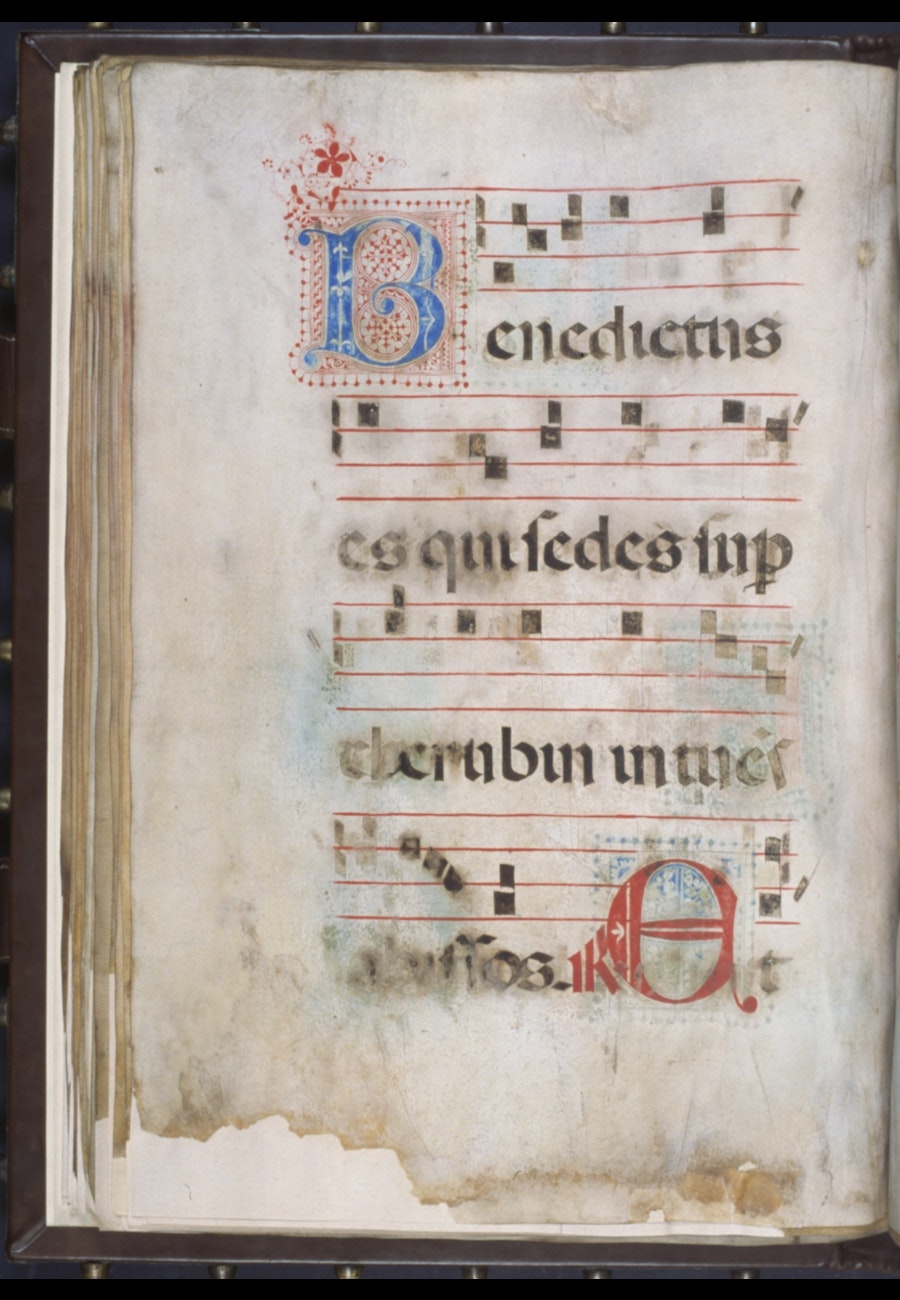 Benedictus
es qui sedes sup
cherubin intués
abissos. R Et